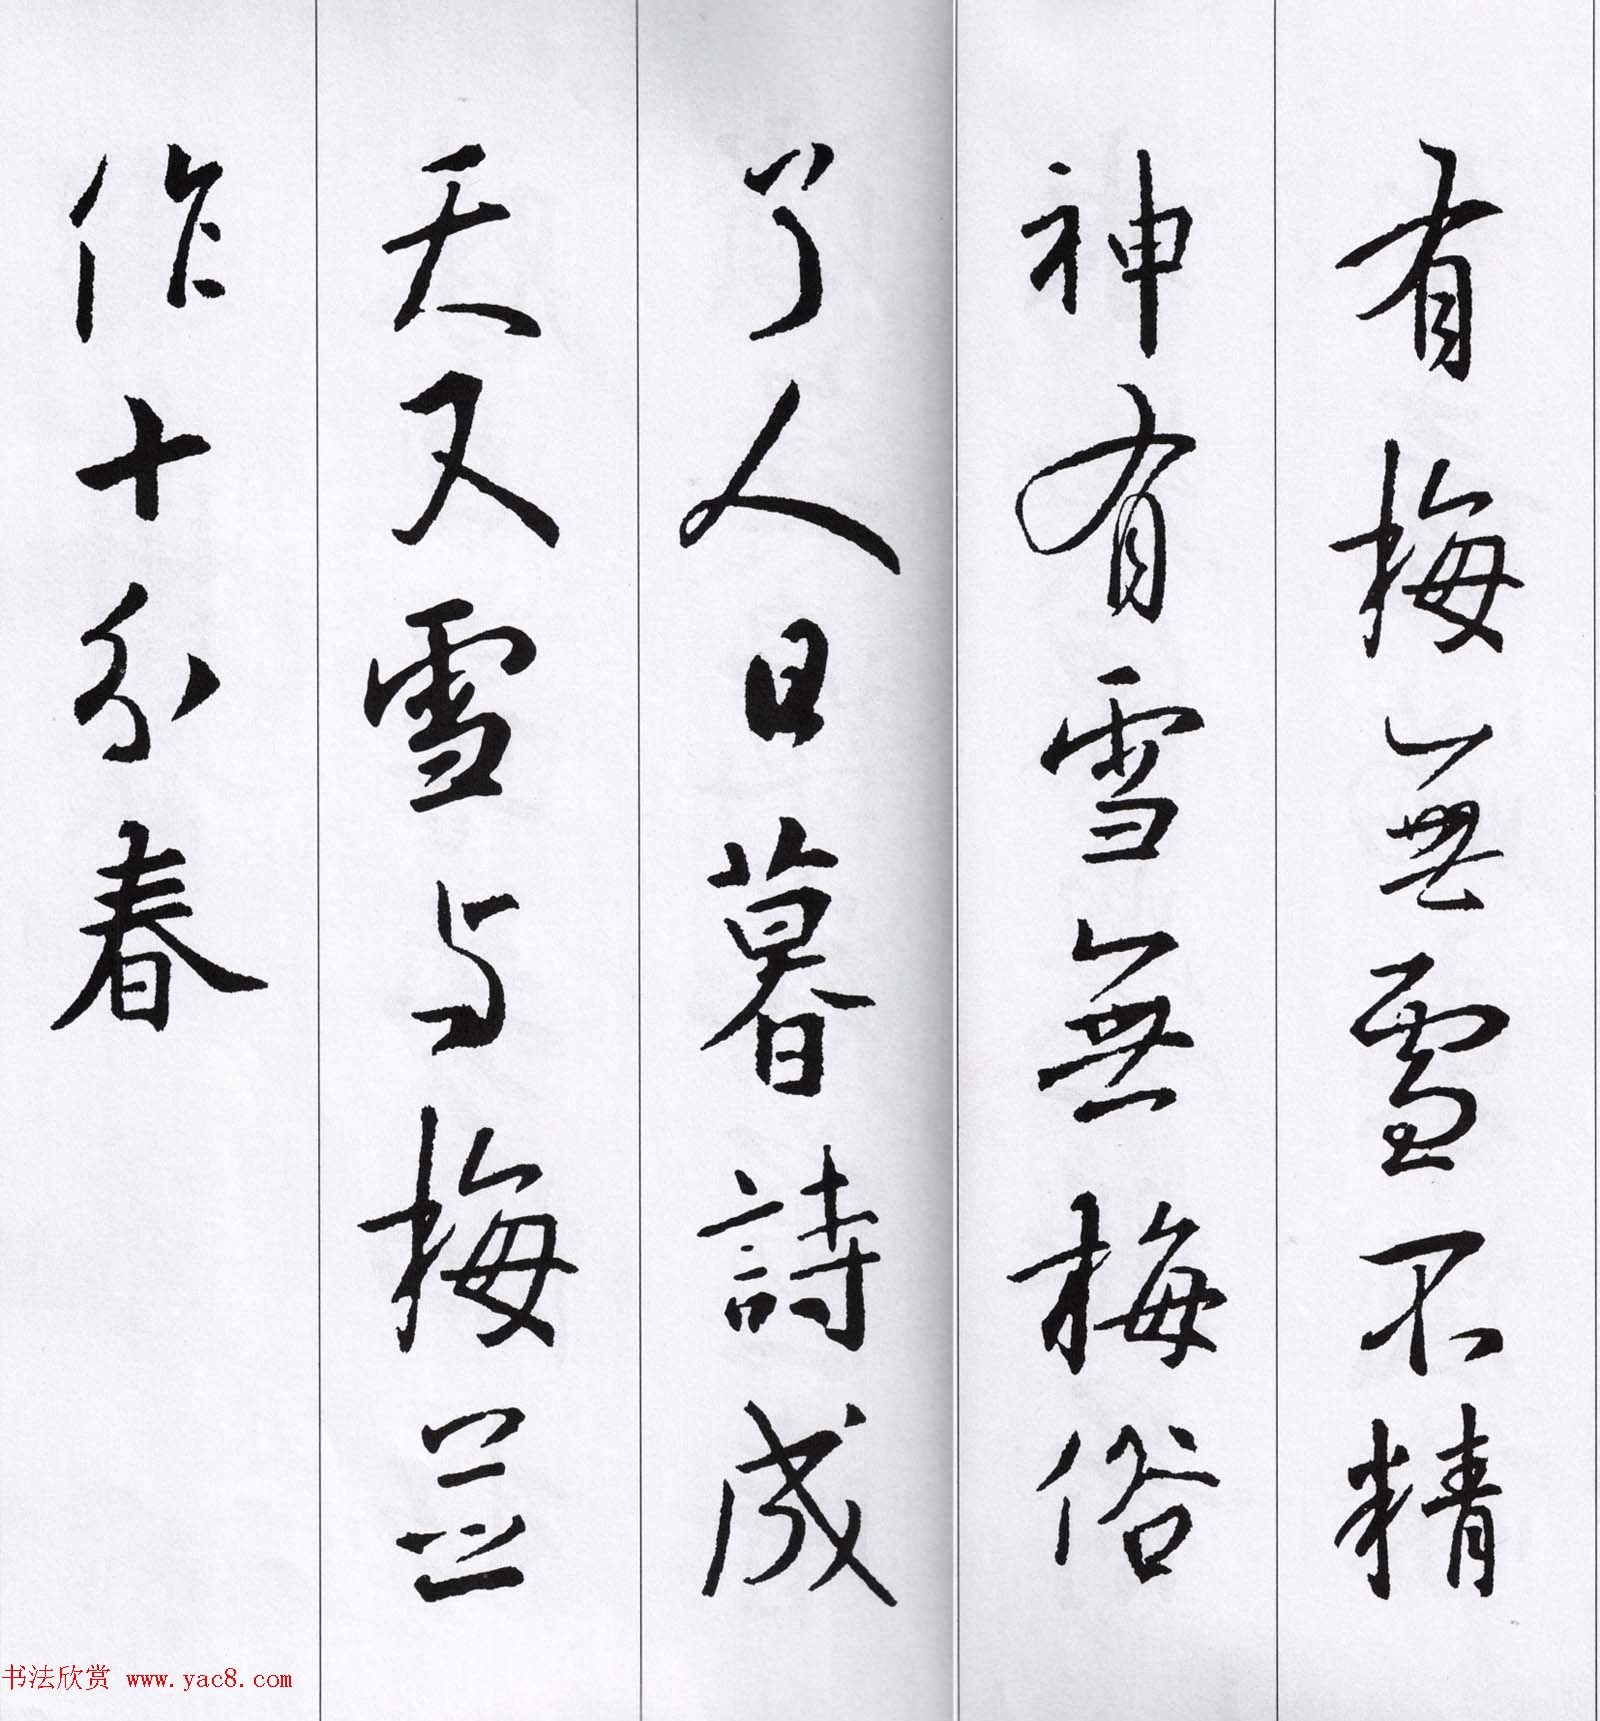 有梅無雪不精
神有雪無梅俗
了人日暮詩成
天又雪与梅並
作十分春
书法欣赏 www.yac8.com